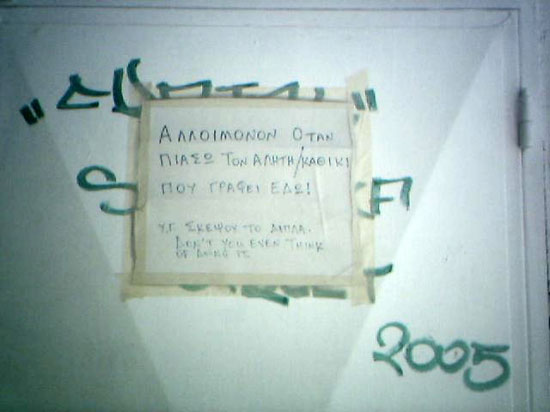 ΑΛΛΟΙΜΟΝΟΝ ΟΤΑΝ
ΠΙΑΣΩ ΤΟΝ ΑΛΗΤΗ/ΚΑΘΙΚΙ
ΠΟΥ ΓΡΑΦΕΙ ΕΔΩ!
Υ.Γ. ΣΚΕΨΟΥ ΤΟ ΔΙΠΛΑ.
DON'T YOU EVEN THINK
OF DOING IT
2005